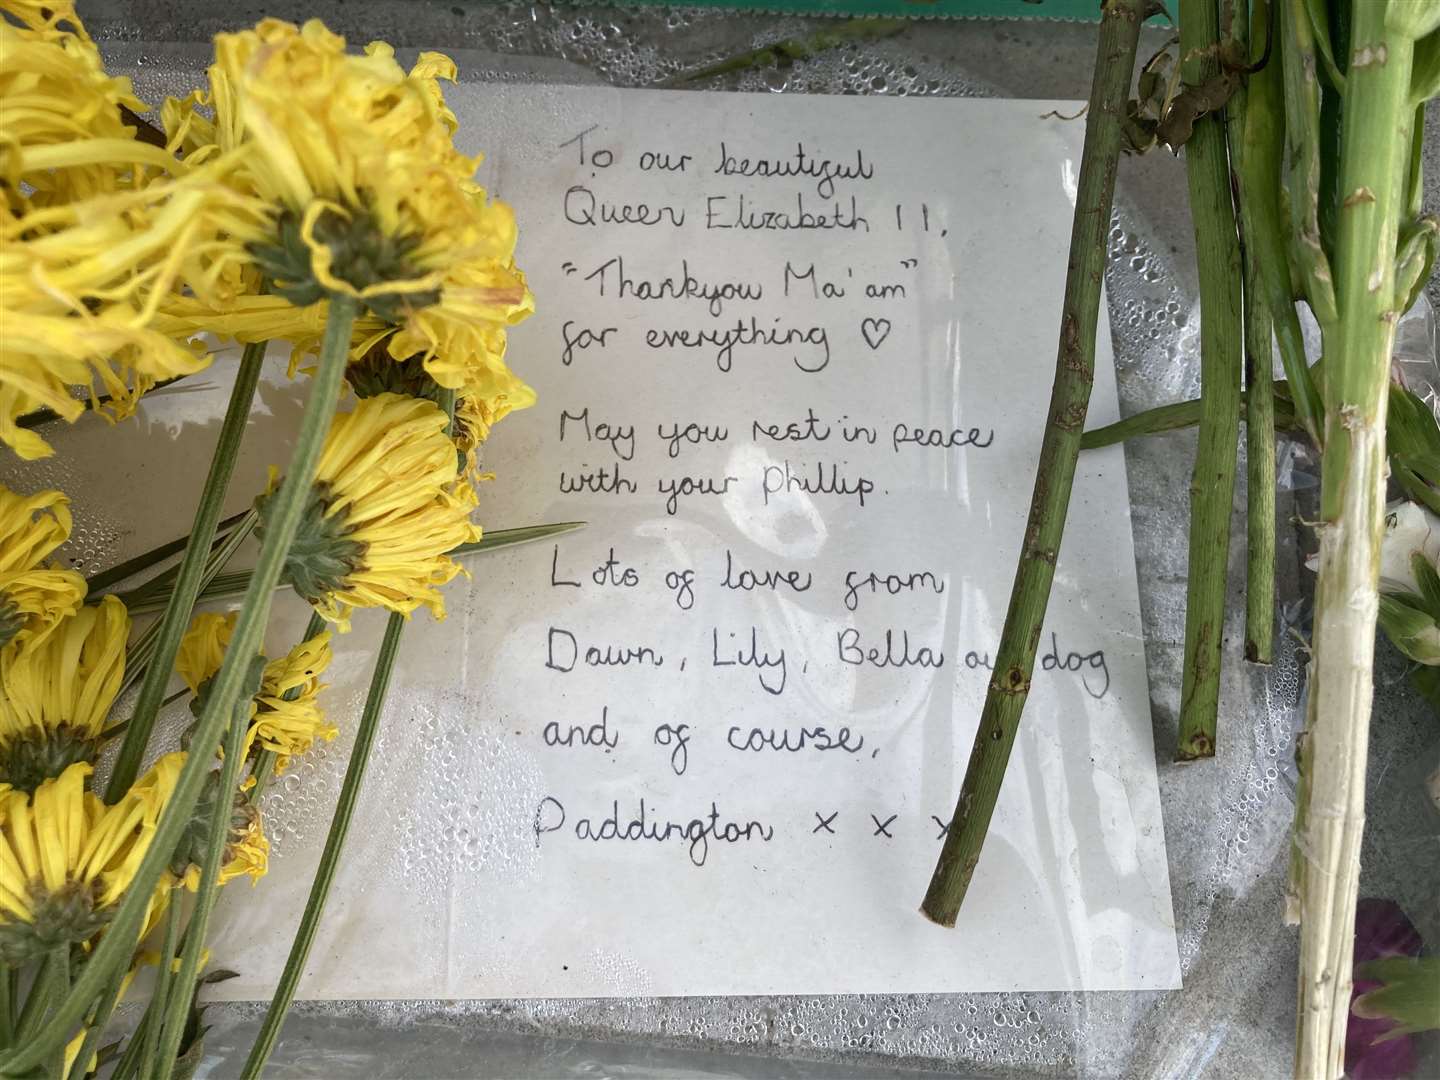 To our beautiful
Queen Elizabeth II.
"Thankyou Ma'am"
for everything ♡
May you rest in peace
with your Phillip.
Lots of love from
Dawn, Lily, Bella our dog
and of course,
Paddington x x x